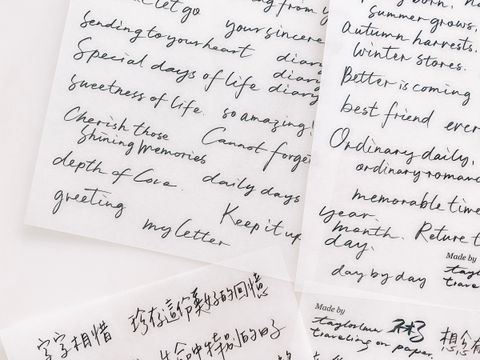 let go
your sincere
Sending to your heart diary
Special days of life diary
diary
sweetness of life. so amazing.
Cherish those
Shining Memories
Cannot forget
depth of Love. daily days
greeting
my letter
Keep it up
summer grows,
Autumn harvests.
winter stores.
Better is coming
best friend ever
Ordinary daily,
ordinary romance
memorable time
year.
month. Return t
day.
day by day
Made by
Made by
traveling on paper
字字相惜 珍存這份美好的回憶
生命中特別的日子
想念